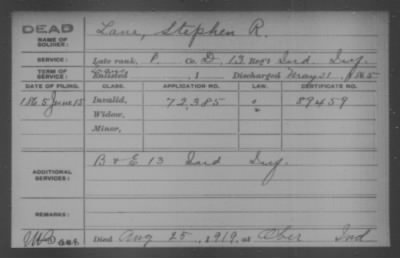 DEAD
NAME OF SOLDIER:
Lane, Stephen R.
SERVICE:
Late rank, P. Co. D, 13 Reg't Ind Inf.
TERM OF SERVICE:
Enlisted , 1 Discharged May 31, 1865
DATE OF FILING. CLASS. APPLICATION NO. LAW. CERTIFICATE NO.
1865 June 15 Invalid, 72,385 " 89459
Widow,
Minor,
ADDITIONAL SERVICES:
B & E 13 Ind Inf.
REMARKS:
Died Aug 25, 1919, at Ober Ind